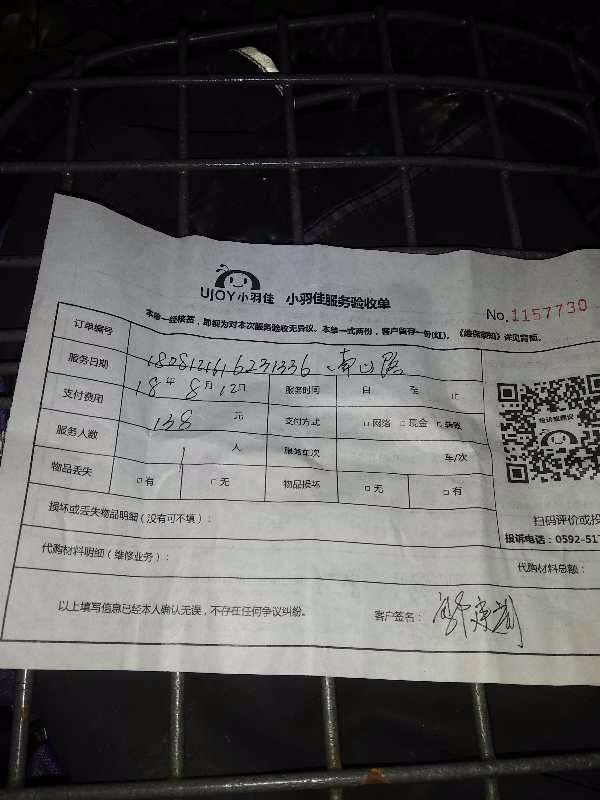 UJOY小羽佳 小羽佳服务验收单
No.1157730
本单一经核签，即视为对本次服务验收无异议。本单一式两份，客户留存一份(红)。《维保须知》详见背面。
订单编号
服务日期 18年8月12日 服务时间 自 至 止
支付费用 138元 支付方式 □网络 □现金 □转账
服务人数 1人 服务车次 车/次
物品丢失 □有 □无 物品损坏 □无 □有
损坏或丢失物品明细（没有可不填）：
扫码评价或投
投诉电话：0592-517
代购材料明细（维修业务）： 代购材料总额：
以上填写信息已经本人确认无误，不存在任何争议纠纷。 客户签名：